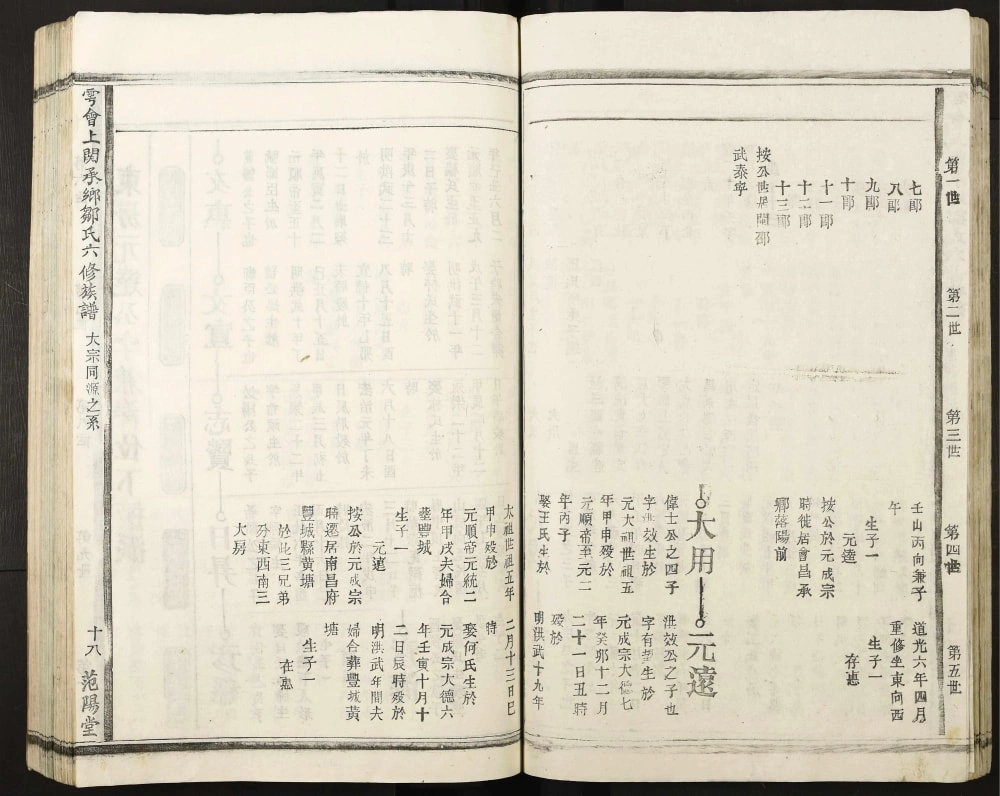 第一世
第二世
第三世
第四世
第五世
七郎
八郎
九郎
十郎
十一郎
十二郎
十三郎
按公世居閩邵
武泰寧
壬山丙向兼子
午
生子一
元逵
按公於元成宗
時徙居會昌承
鄉落陽前
道光六年四月
重修坐東向西
生子一
存惪
大用
偉士公之四子
字泚效生於
元太祖世祖五
年甲申殁於
元順帝至元二
年丙子
娶王氏生於
元遠
泚效公之子也
字有聖生於
元成宗大德七
年癸卯十二月
二十一日丑時
殁於
明洪武十九年
太祖世祖五年
甲申殁於
元順帝元統二
年甲戌夫婦合
塟豐城
生子一
元遠
按公於元成宗
時遷居南昌府
豐城縣黄塘
於此三兄弟
分東西南三
大房
二月十三日巳
時
娶何氏生於
元成宗大德六
年壬寅十月十
二日辰時殁於
明洪武年間夫
婦合葬豐城黄
塘
生子一
在惪
雩會上関承鄉鄒氏六修族譜
大宗同源之系
十八
范陽堂